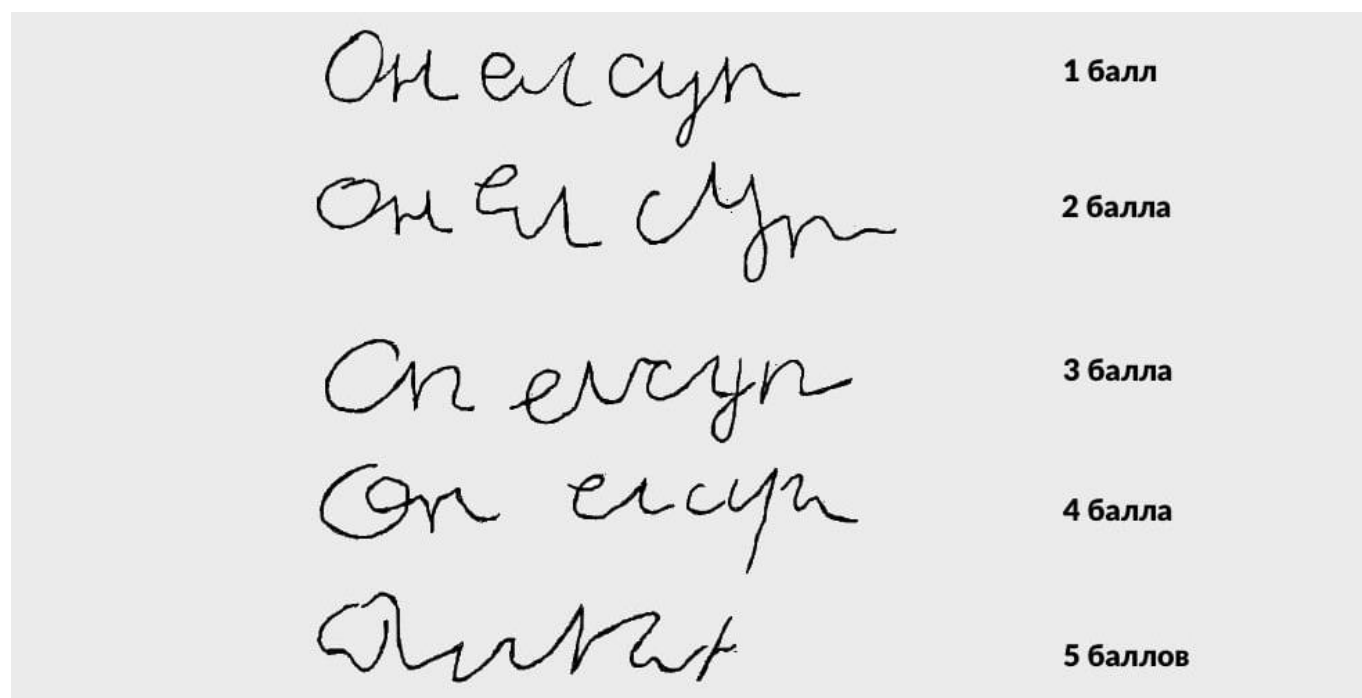 Он ел суп 1 балл
Он Ел суп 2 балла
Сп ел суп 3 балла
Оп ел суп 4 балла
5 баллов